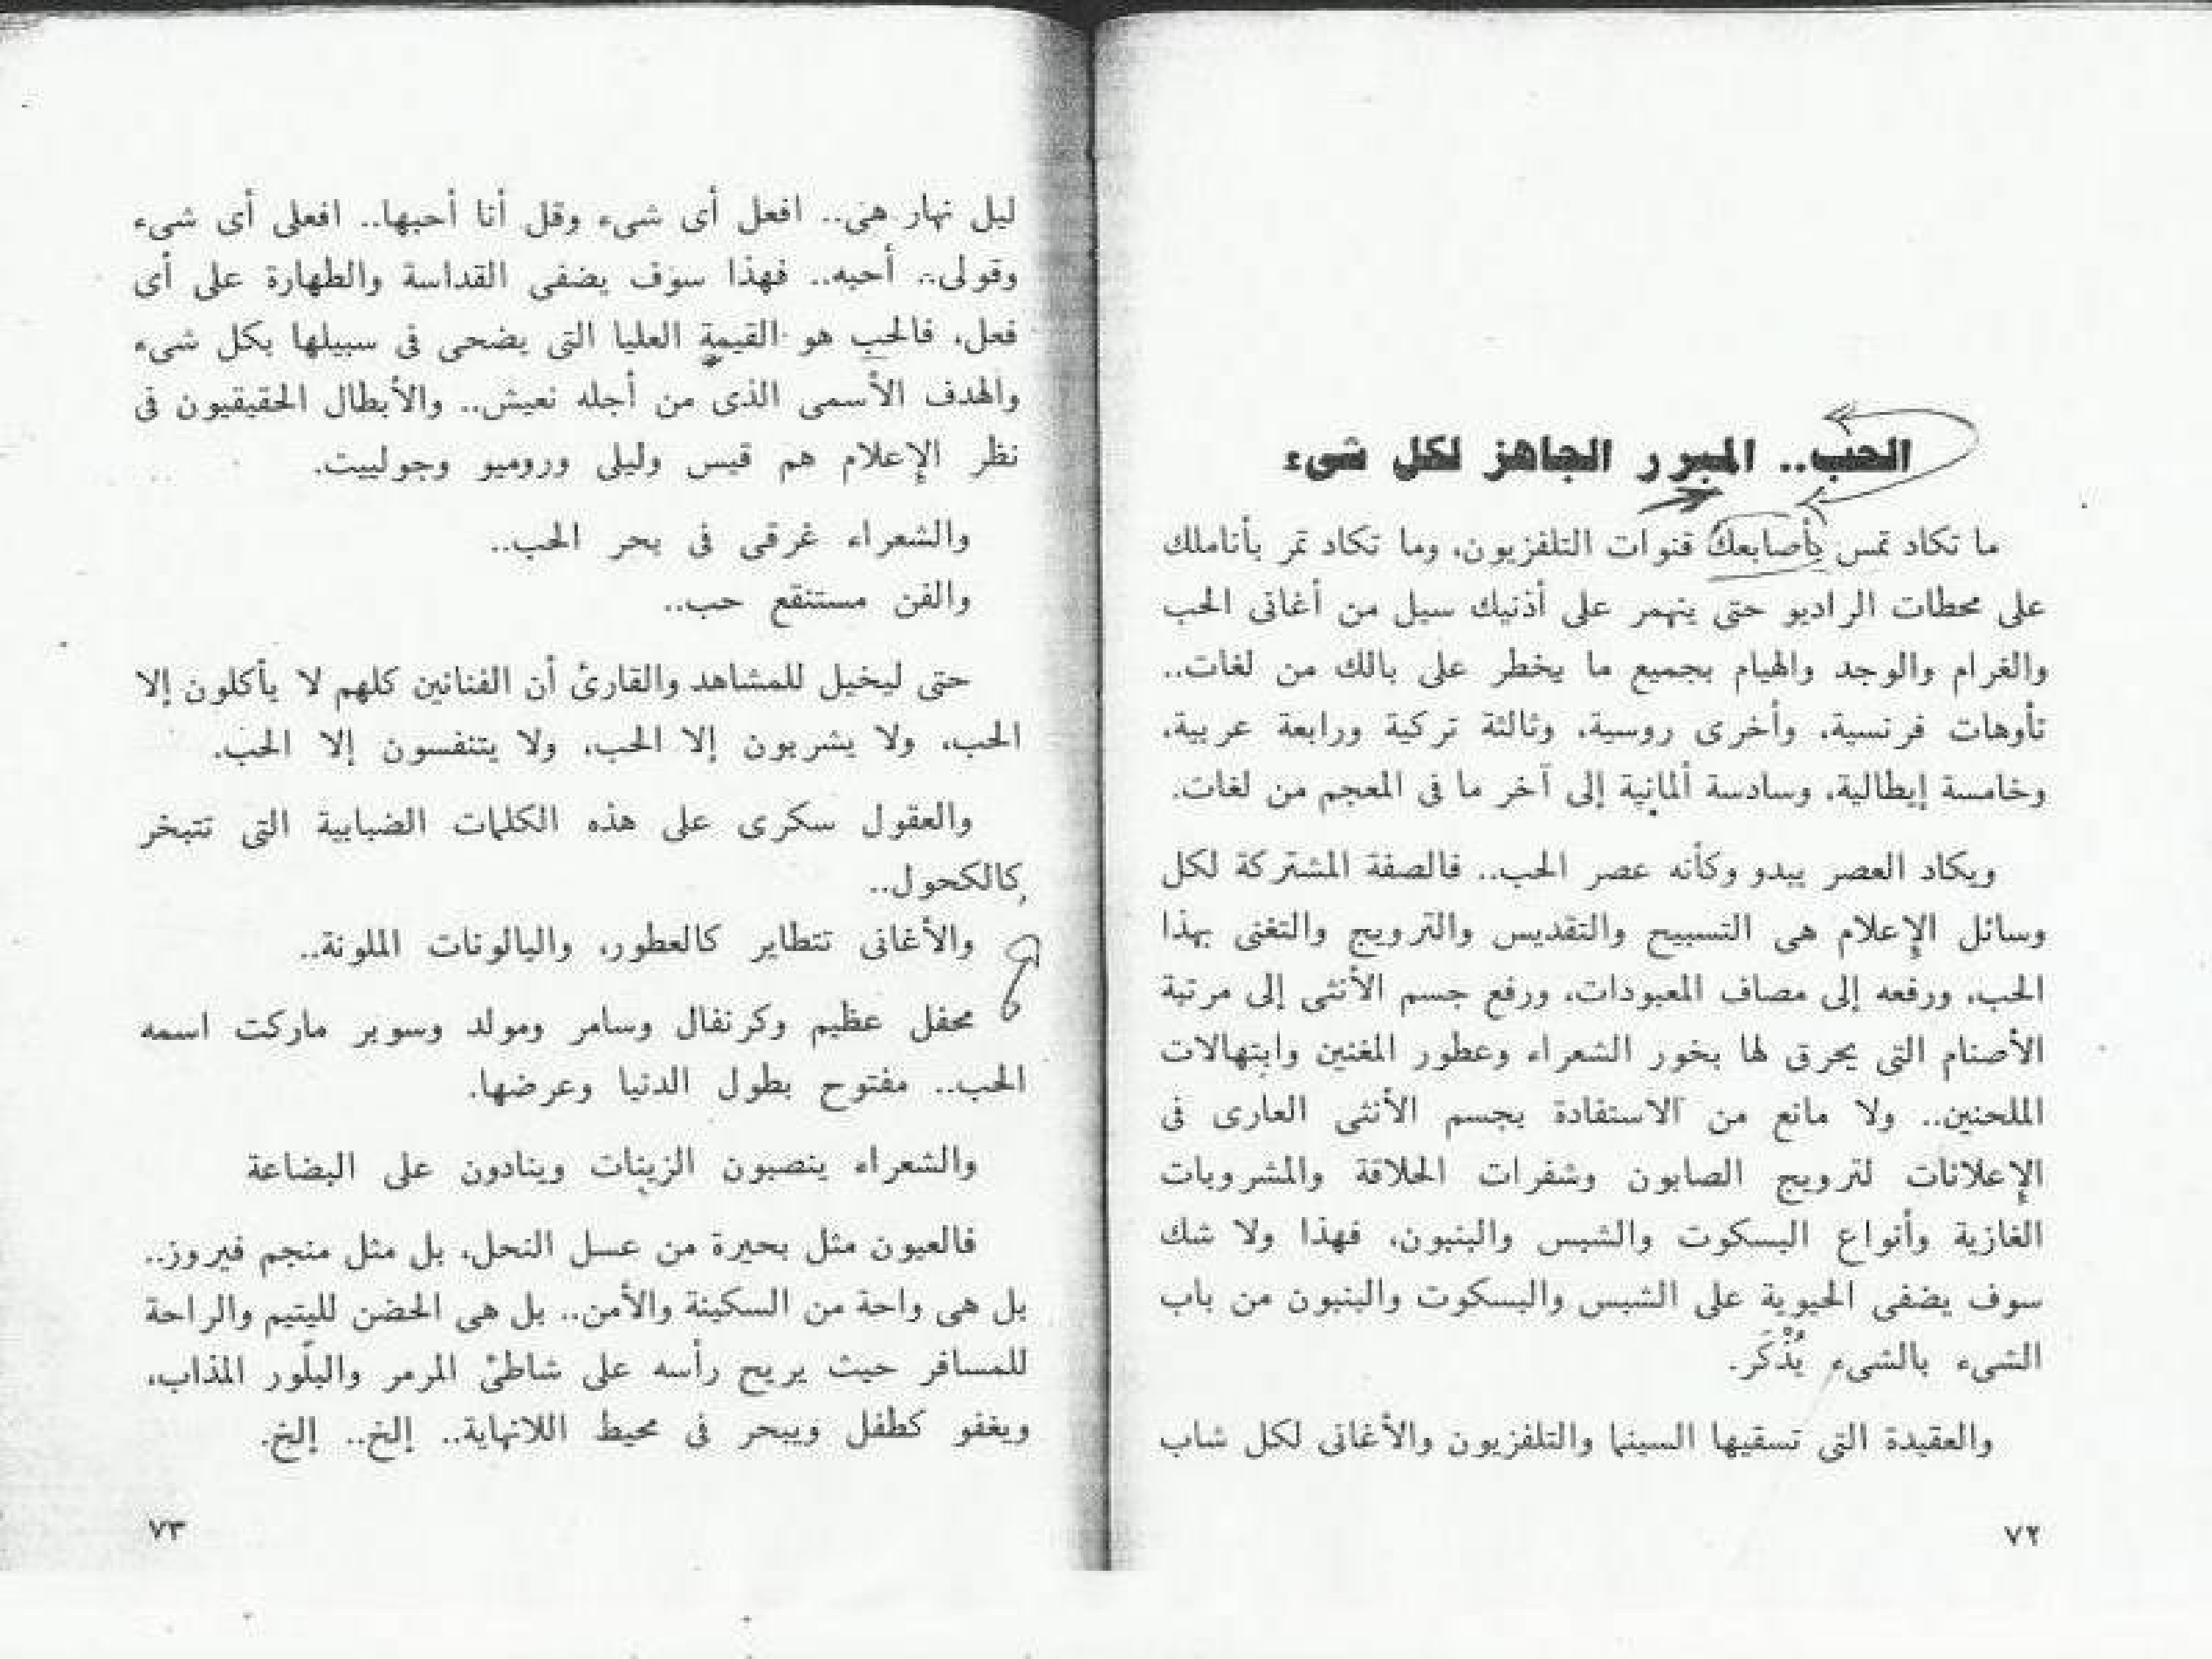 الحب.. المبرر الجاهز لكل شىء
ما تكاد تمس بأصابعك قنوات التلفزيون، وما تكاد تمر بأناملك
على محطات الراديو حتى ينهمر على أذنيك سيل من أغانى الحب
والغرام والوجد والهيام بجميع ما يخطر على بالك من لغات..
تأوهات فرنسية، وأخرى روسية، وثالثة تركية ورابعة عربية،
وخامسة إيطالية، وسادسة ألمانية إلى آخر ما فى المعجم من لغات.
ويكاد العصر يبدو وكأنه عصر الحب.. فالصفة المشتركة لكل
وسائل الإعلام هى التسبيح والتقديس والترويج والتغنى بهذا
الحب، ورفعه إلى مصاف المعبودات، ورفع جسم الأنثى إلى مرتبة
الأصنام التى يحرق لها بخور الشعراء وعطور المغنين وابتهالات
الملحنين.. ولا مانع من الاستفادة بجسم الأنثى العارى فى
الإعلانات لترويج الصابون وشفرات الحلاقة والمشروبات
الغازية وأنواع البسكوت والشبس والبنبون، فهذا ولا شك
سوف يضفى الحيوية على الشبس والبسكوت والبنبون من باب
الشىء بالشىء يُذْكَر.
والعقيدة التى تسقيها السينما والتلفزيون والأغانى لكل شاب
٧٢
ليل نهار هى.. افعل أى شىء وقل أنا أحبها.. افعلى أى شىء
وقولى.. أحبه.. فهذا سوف يضفى القداسة والطهارة على أى
فعل، فالحب هو القيمة العليا التى يضحى فى سبيلها بكل شىء
والهدف الأسمى الذى من أجله نعيش.. والأبطال الحقيقيون فى
نظر الإعلام هم قيس وليلى وروميو وجولييت.
والشعراء غرقى فى بحر الحب..
والفن مستنقع حب..
حتى ليخيل للمشاهد والقارئ أن الفنانين كلهم لا يأكلون إلا
الحب، ولا يشربون إلا الحب، ولا يتنفسون إلا الحب.
والعقول سكرى على هذه الكلمات الضبابية التى تتبخر
كالكحول..
والأغانى تتطاير كالعطور، والبالونات الملونة..
محفل عظيم وكرنفال وسامر ومولد وسوبر ماركت اسمه
الحب.. مفتوح بطول الدنيا وعرضها.
والشعراء ينصبون الزينات وينادون على البضاعة
فالعيون مثل بحيرة من عسل النحل، بل مثل منجم فيروز..
بل هى واحة من السكينة والأمن.. بل هى الحضن لليتيم والراحة
للمسافر حيث يريح رأسه على شاطئ المرمر والبلّور المذاب،
ويغفو كطفل ويبحر فى محيط اللانهاية.. إلخ.. إلخ.
٧٣